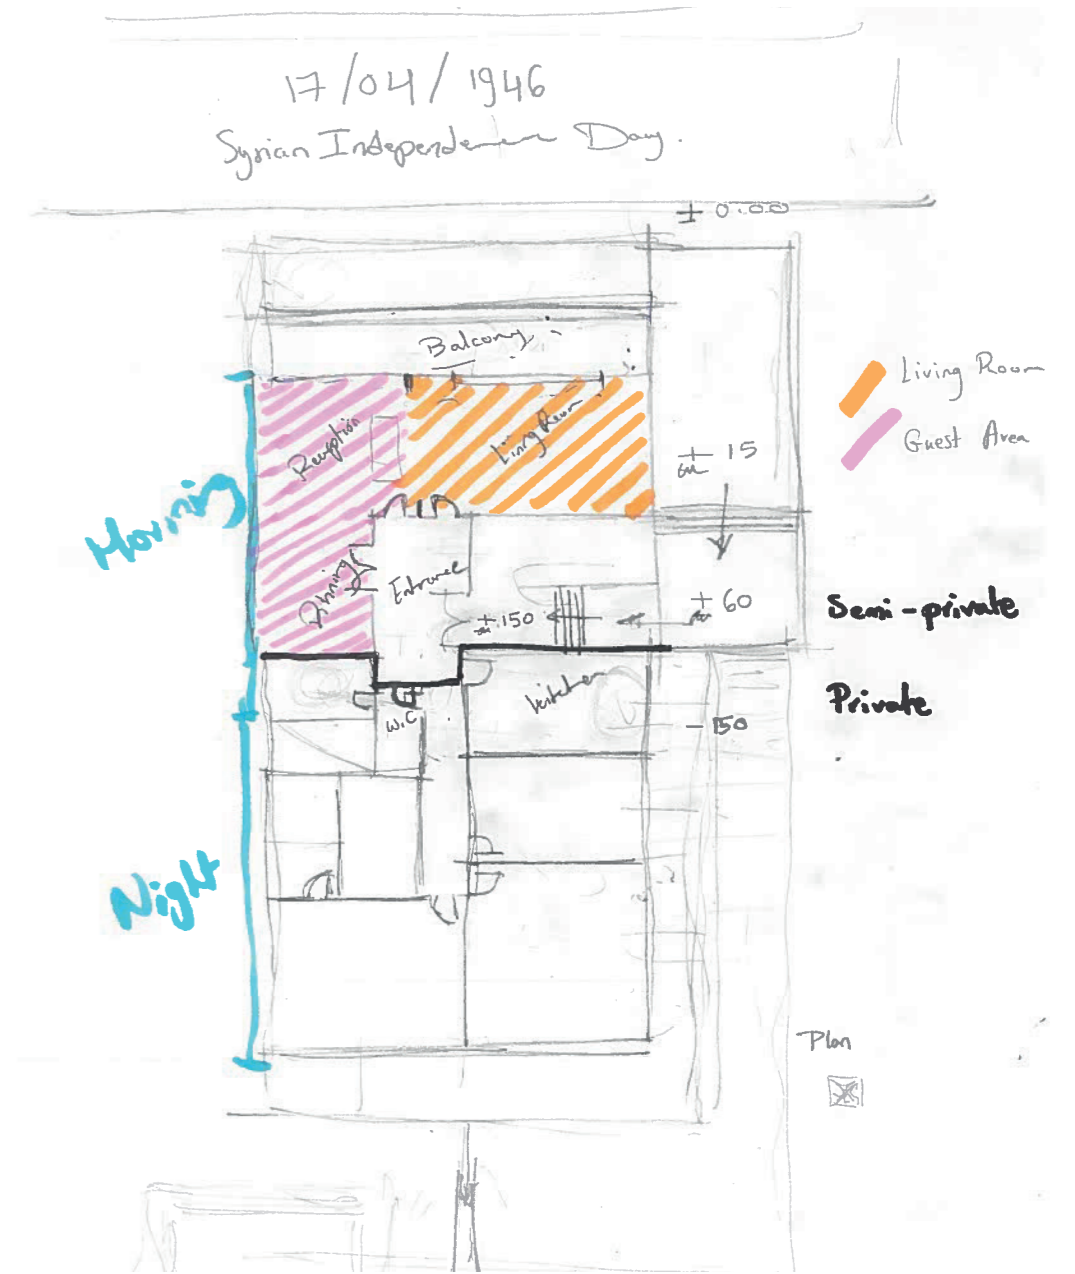 17/04/1946
Syrian Independence Day.
± 0.00
Balcony
Living Room
Guest Area
Reception
Living Room
± 15
Morning
Dining
Entrance
± 150
± 60
Semi-private
Private
Kitchen
W.C
- 150
Night
Plan